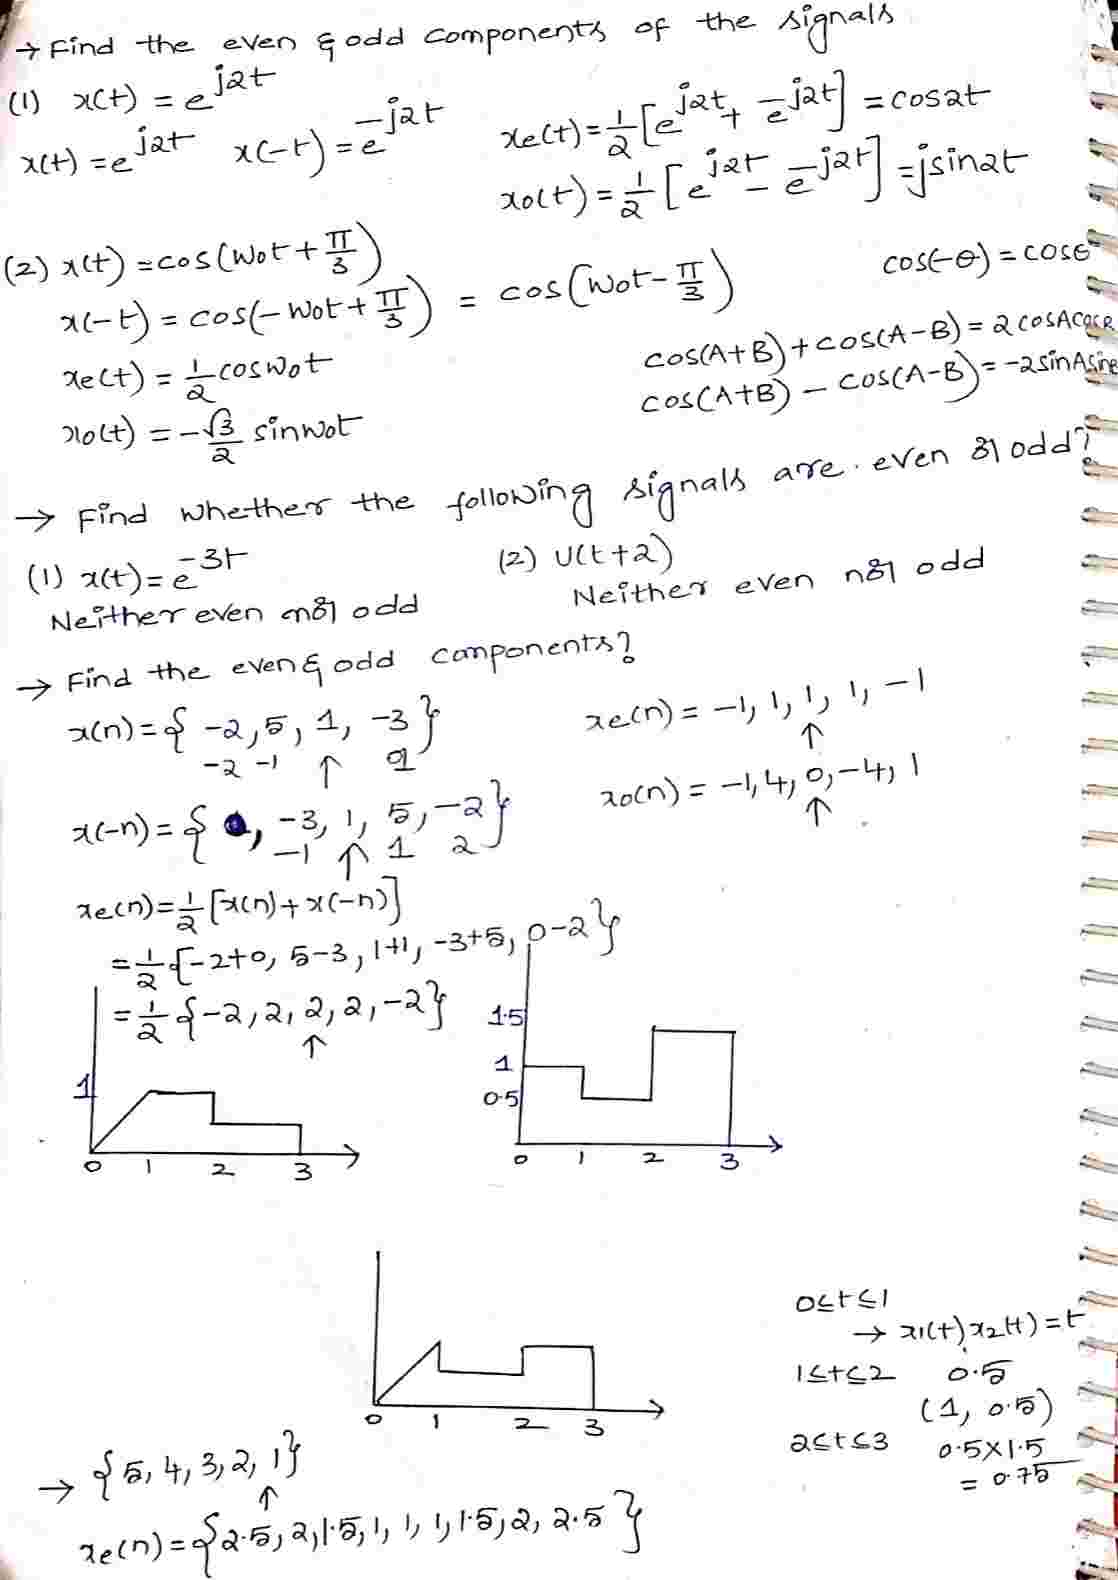 → Find the even & odd components of the signals
(1) x(t) = e^{j2t}
x(t) = e^{j2t} x(-t) = e^{-j2t} xe(t) = 1/2 [e^{j2t} + e^{-j2t}] = cos2t
xo(t) = 1/2 [e^{j2t} - e^{-j2t}] = jsin2t
(2) x(t) = cos(ω0t + π/3)
cos(-θ) = cosθ
x(-t) = cos(-ω0t + π/3) = cos(ω0t - π/3)
cos(A+B) + cos(A-B) = 2cosAcosB
xe(t) = 1/2 cosω0t
cos(A+B) - cos(A-B) = -2sinAsinB
xo(t) = -√3/2 sinω0t
→ Find whether the following signals are even or odd?
(1) x(t) = e^{-3t} (2) U(t+2)
Neither even nor odd Neither even nor odd
→ Find the even & odd components?
x(n) = { -2, 5, 1, -3 } xe(n) = -1, 1, 1, 1, -1
-2 -1 ↑ 1 ↑
x(-n) = { , -3, 1, 5, -2 } xo(n) = -1, 4, 0, -4, 1
-1 ↑ 1 2 ↑
xe(n) = 1/2 [x(n) + x(-n)]
= 1/2 {-2+0, 5-3, 1+1, -3+5, 0-2}
= 1/2 {-2, 2, 2, 2, -2}
↑
1
0 1 2 3
1.5
1
0.5
0 1 2 3
0 1 2 3
0≤t≤1
→ x1(t) x2(t) = t
1≤t≤2 0.5
(1, 0.5)
2≤t≤3 0.5×1.5
= 0.75
→ {5, 4, 3, 2, 1}
↑
xe(n) = {2.5, 2, 1.5, 1, 1, 1, 1.5, 2, 2.5}